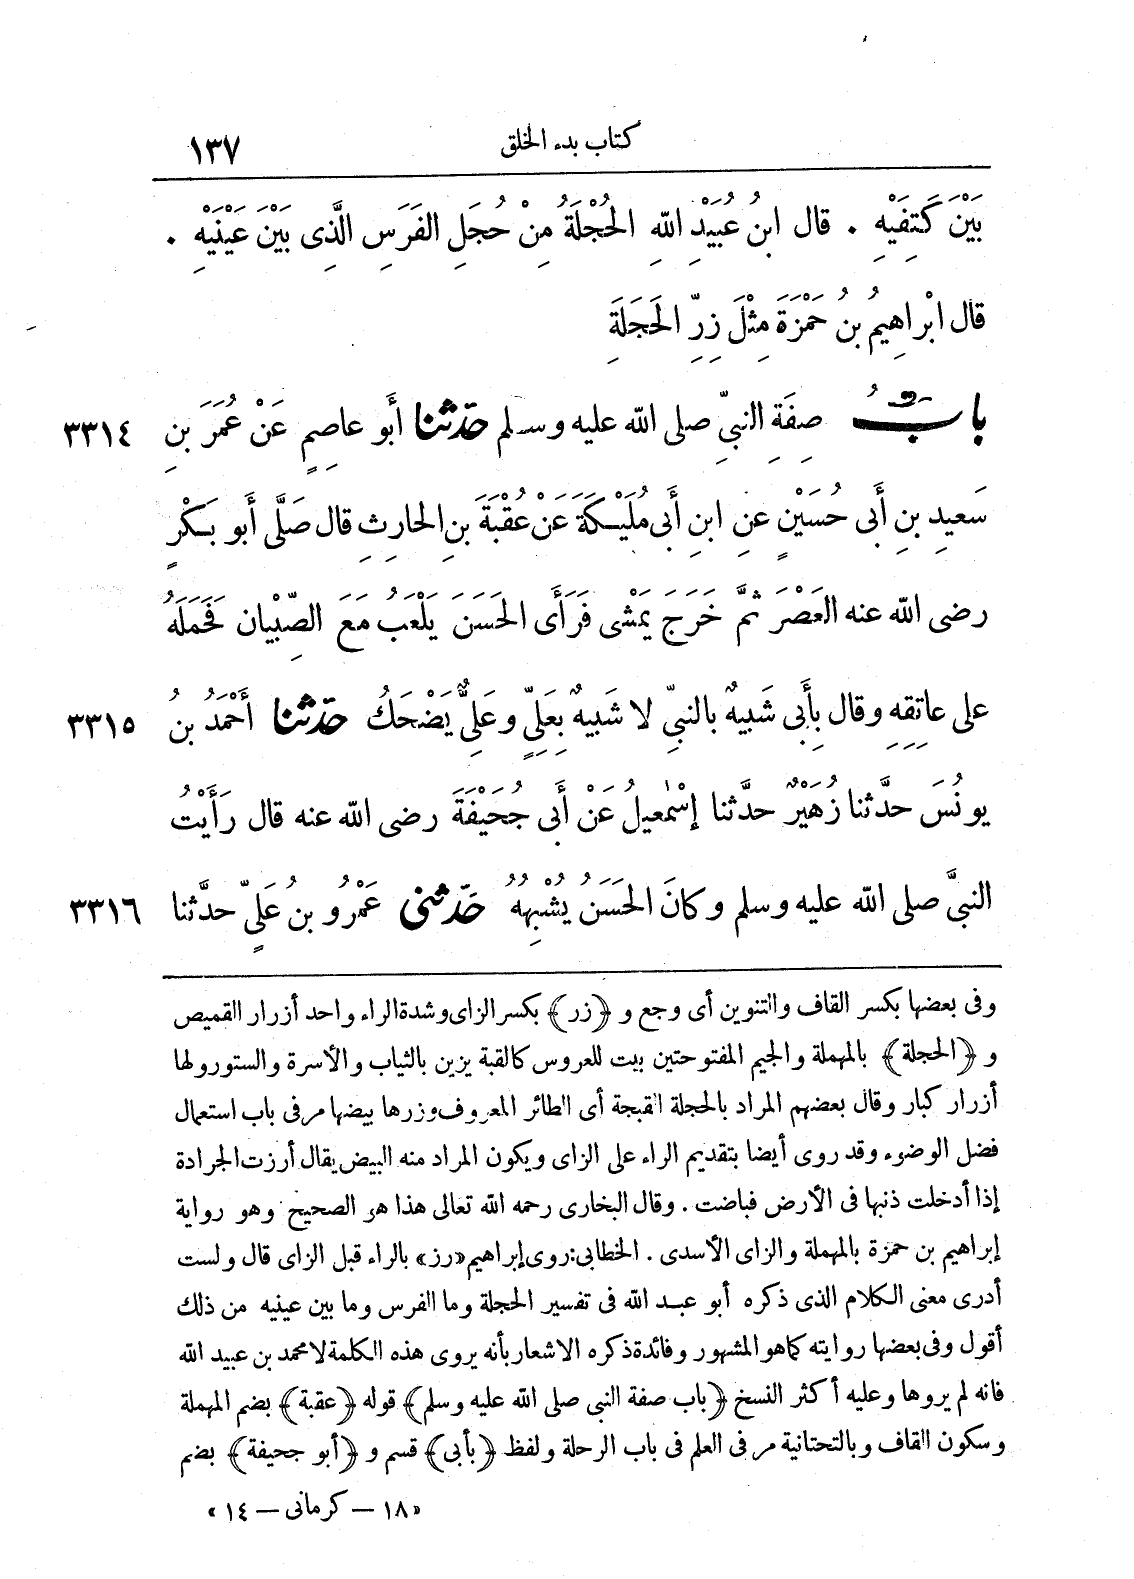 كتاب بدء الخلق
١٣٧
بَيْنَ كَتِفَيْهِ . قال ابنُ عُبَيْدِ اللّهِ الحُجْلَةُ مِنْ حُجَلِ الفَرَسِ الَّذِى بَيْنَ عَيْنَيْهِ .
قال ابْراهِيمُ بنُ حَمْزَةَ مِثْلَ زِرِّ الحَجَلَةِ
بابُ صِفَةِ النبىِّ صلى اللّه عليه وسلم حدّثنا أَبو عاصِمٍ عَنْ عُمَرَ بنِ ٣٣١٤
سَعيِدِ بنِ أَبى حُسَيْنٍ عنِ ابنِ أَبى مُلَيْكَةَ عَنْ عُقْبَةَ بنِ الحارِثِ قال صَلَّى أَبو بَكْرٍ
رضى اللّه عنه العَصْرَ ثمَّ خَرَجَ يَمْشى فَرَأَى الحَسَنَ يَلْعَبُ مَعَ الصِّبْيانِ فَحَمَلَهُ
على عاتِقِهِ وقال بِأَبى شَبيهٌ بالنبىِّ لا شَبيهٌ بِعَلِىٍّ وعَلِىٌّ يَضْحَكُ حدّثنا أَحْمَدُ بنُ ٣٣١٥
يونُسَ حدَّثنا زُهَيْرٌ حدَّثنا إسْمٰعيلُ عَنْ أَبى جُحَيْفَةَ رضى اللّه عنه قال رَأَيْتُ
النبىَّ صلى اللّه عليه وسلم وكانَ الحَسَنُ يُشْبِهُهُ حَدّثنى عَمْرُو بنُ عَلِىٍّ حدَّثنا ٣٣١٦
وفى بعضها بكسر القاف والتنوين أى وجع و ﴿زر﴾ بكسر الزاى وشدة الراء واحد أزرار القميص
و ﴿الحجلة﴾ بالمهملة والجيم المفتوحتين بيت للعروس كالقبة يزين بالثياب والأسرة والستور ولها
أزرار كبار وقال بعضهم المراد بالحجلة القبجة أى الطائر المعروف وزرها بيضها مر فى باب استعمال
فضل الوضوء وقد روى أيضا بتقديم الراء على الزاى ويكون المراد منه البيض يقال أرزت الجرادة
إذا أدخلت ذنبها فى الأرض فباضت . وقال البخارى رحمه الله تعالى هذا هو الصحيح وهو رواية
إبراهيم بن حمزة بالمهملة والزاى الأسدى . الخطابى: روى إبراهيم «رز» بالراء قبل الزاى قال ولست
أدرى معنى الكلام الذى ذكره أبو عبد الله فى تفسير الحجلة وما الفرس وما بين عينيه من ذلك
أقول وفى بعضها روايته كما هو المشهور وفائدة ذكره الاشعار بأنه يروى هذه الكلمة لا محمد بن عبيد الله
فانه لم يروها وعليه أكثر النسخ ﴿باب صفة النبى صلى الله عليه وسلم﴾ قوله ﴿عقبة﴾ بضم المهملة
وسكون القاف وبالتحتانية مر فى العلم فى باب الرحلة ولفظ ﴿بأبى﴾ قسم و ﴿أبو جحيفة﴾ بضم
«١٨ — كرمانى — ١٤»